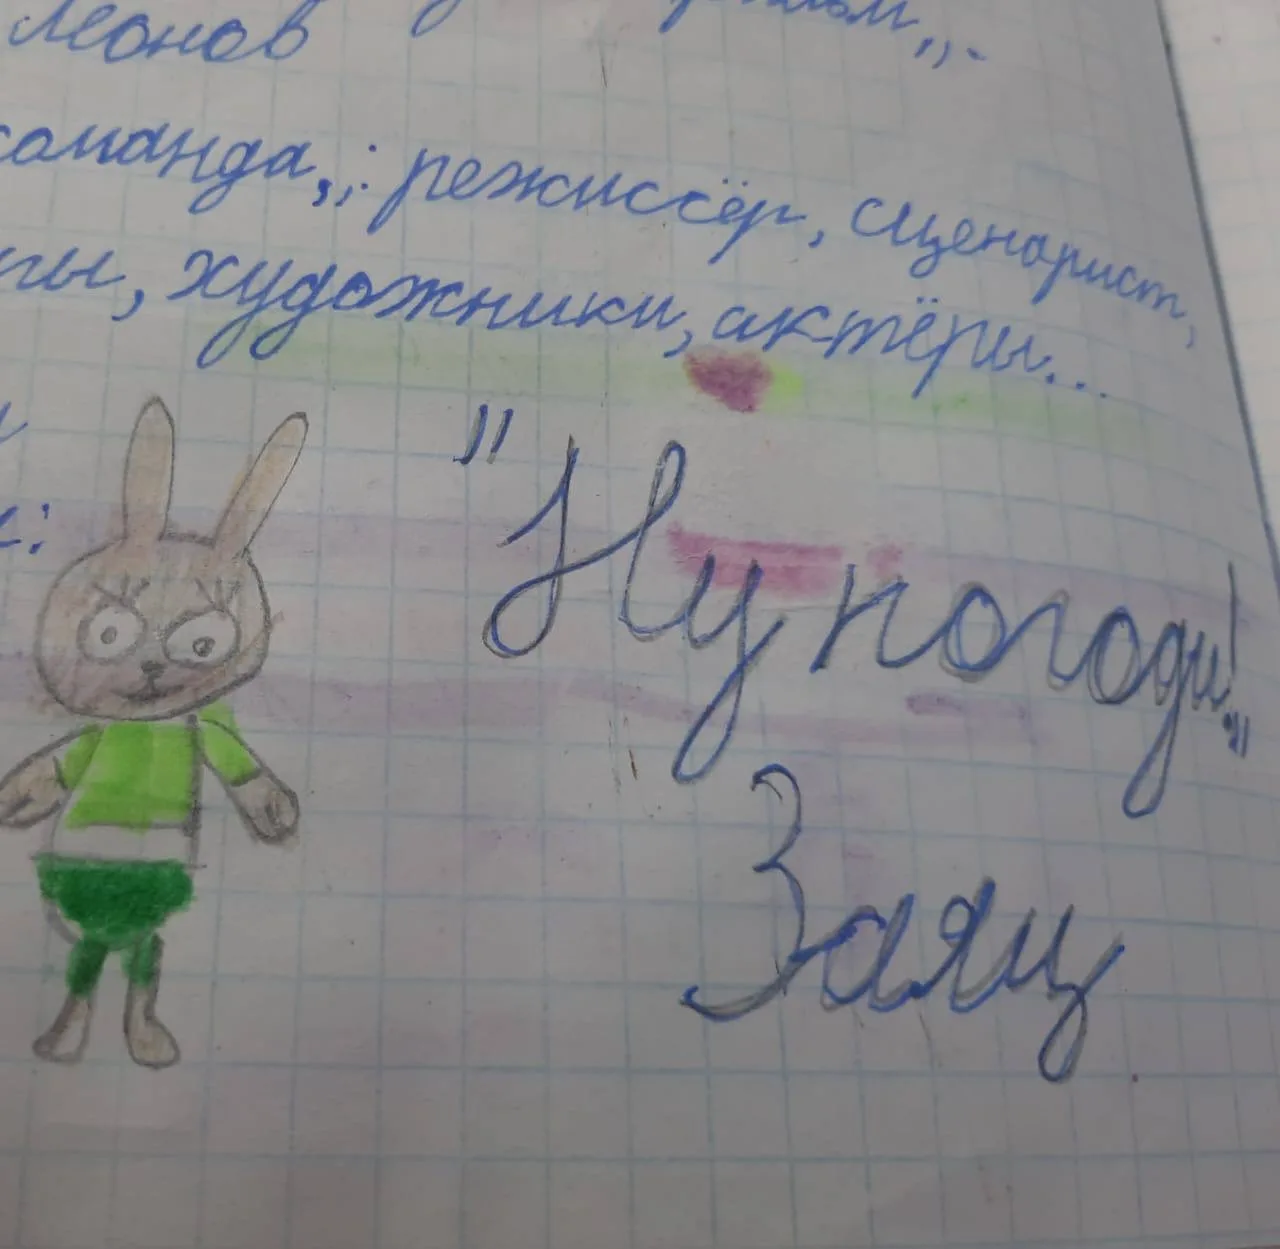 Леонов
команда,,: режиссёр, сценарист,
художники, актёры...
"Ну погоди!"
Заяц